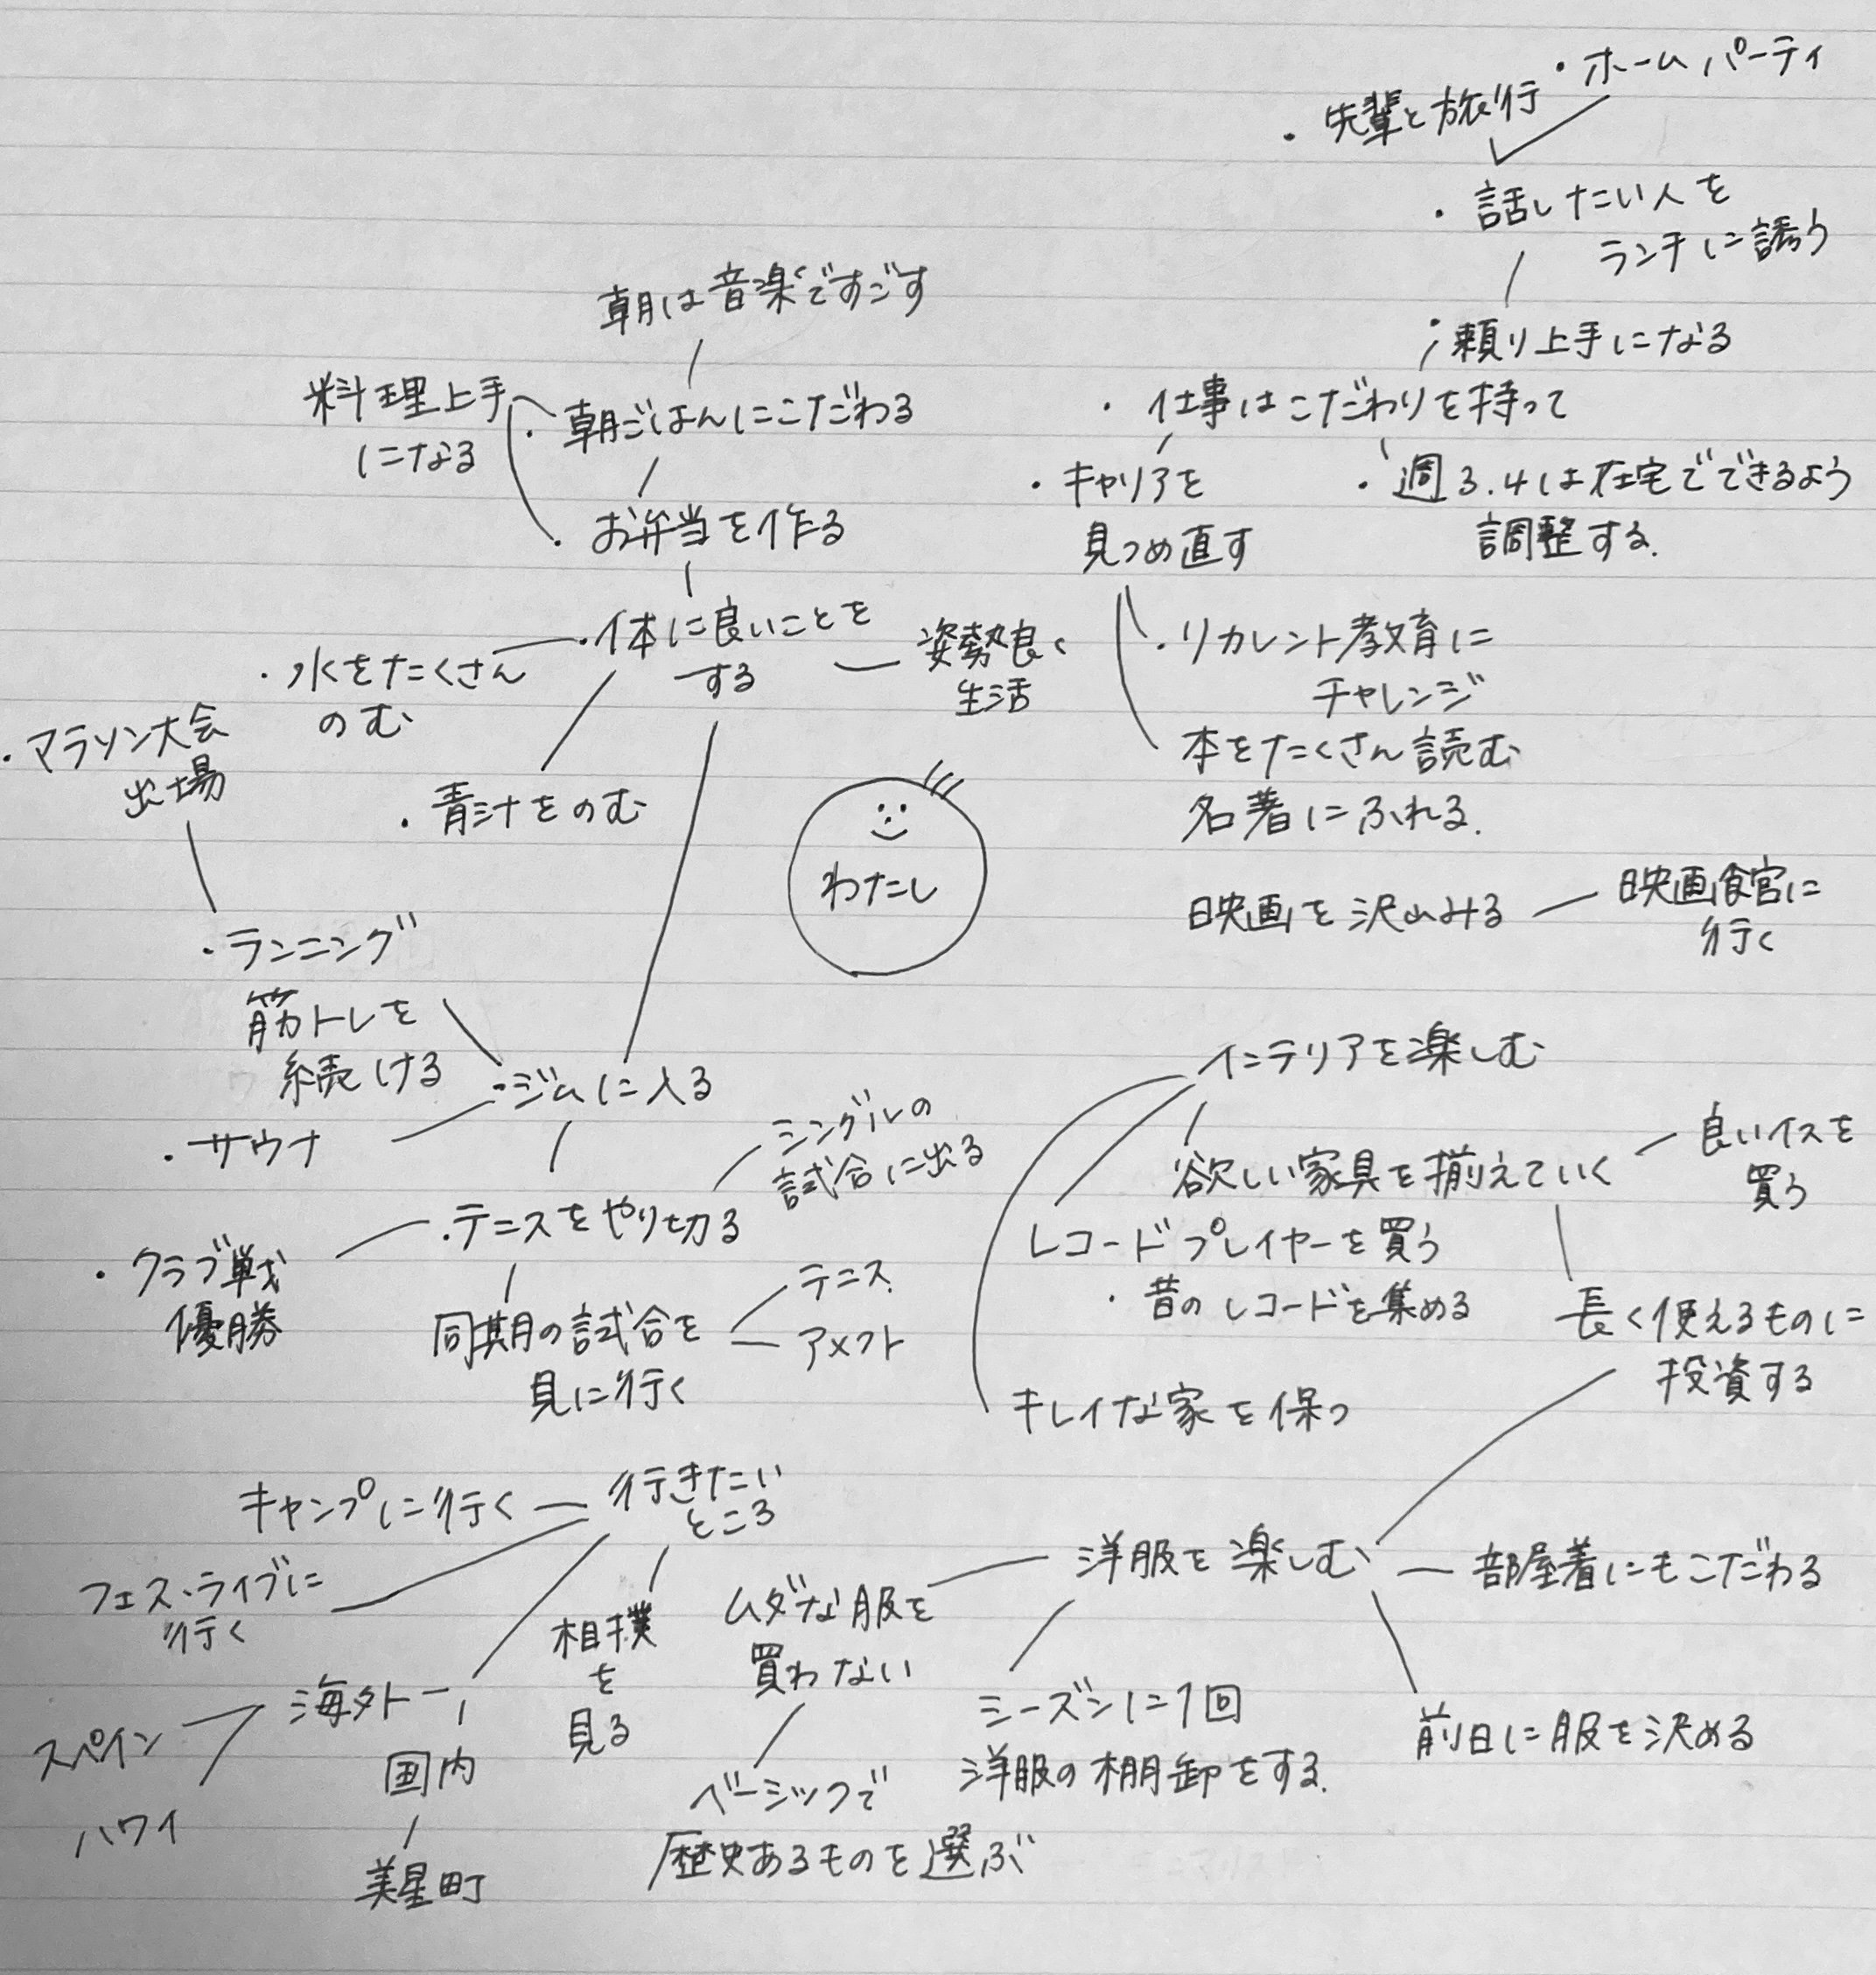 ・ホームパーティ
・先輩と旅行
・話したい人を
ランチに誘う
・頼り上手になる
・仕事はこだわりを持って
・キャリアを
見つめ直す
・週3.4は在宅でできるよう
調整する.
・リカレント教育に
チャレンジ
本をたくさん読む
名著にふれる.
映画を沢山みる
映画館に
行く
朝は音楽ですごす
料理上手
になる
・朝ごはんにこだわる
・お弁当を作る
・体に良いことを
する
姿勢良く
生活
・水をたくさん
のむ
・青汁をのむ
わたし
・マラソン大会
出場
・ランニング
筋トレを
続ける
・ジムに入る
・サウナ
シングルの
試合に出る
・テニスをやり切る
・クラブ戦
優勝
同期の試合を
見に行く
テニス
アメフト
インテリアを楽しむ
欲しい家具を揃えていく
良いイスを
買う
レコードプレイヤーを買う
・昔のレコードを集める
長く使えるものに
投資する
キレイな家を保つ
行きたい
ところ
キャンプに行く
フェス・ライブに
行く
海外
スペイン
ハワイ
国内
美星町
相撲
を
見る
洋服を楽しむ
部屋着にもこだわる
前日に服を決める
ムダな服を
買わない
ベーシックで
歴史あるものを選ぶ
シーズンに1回
洋服の棚卸をする.